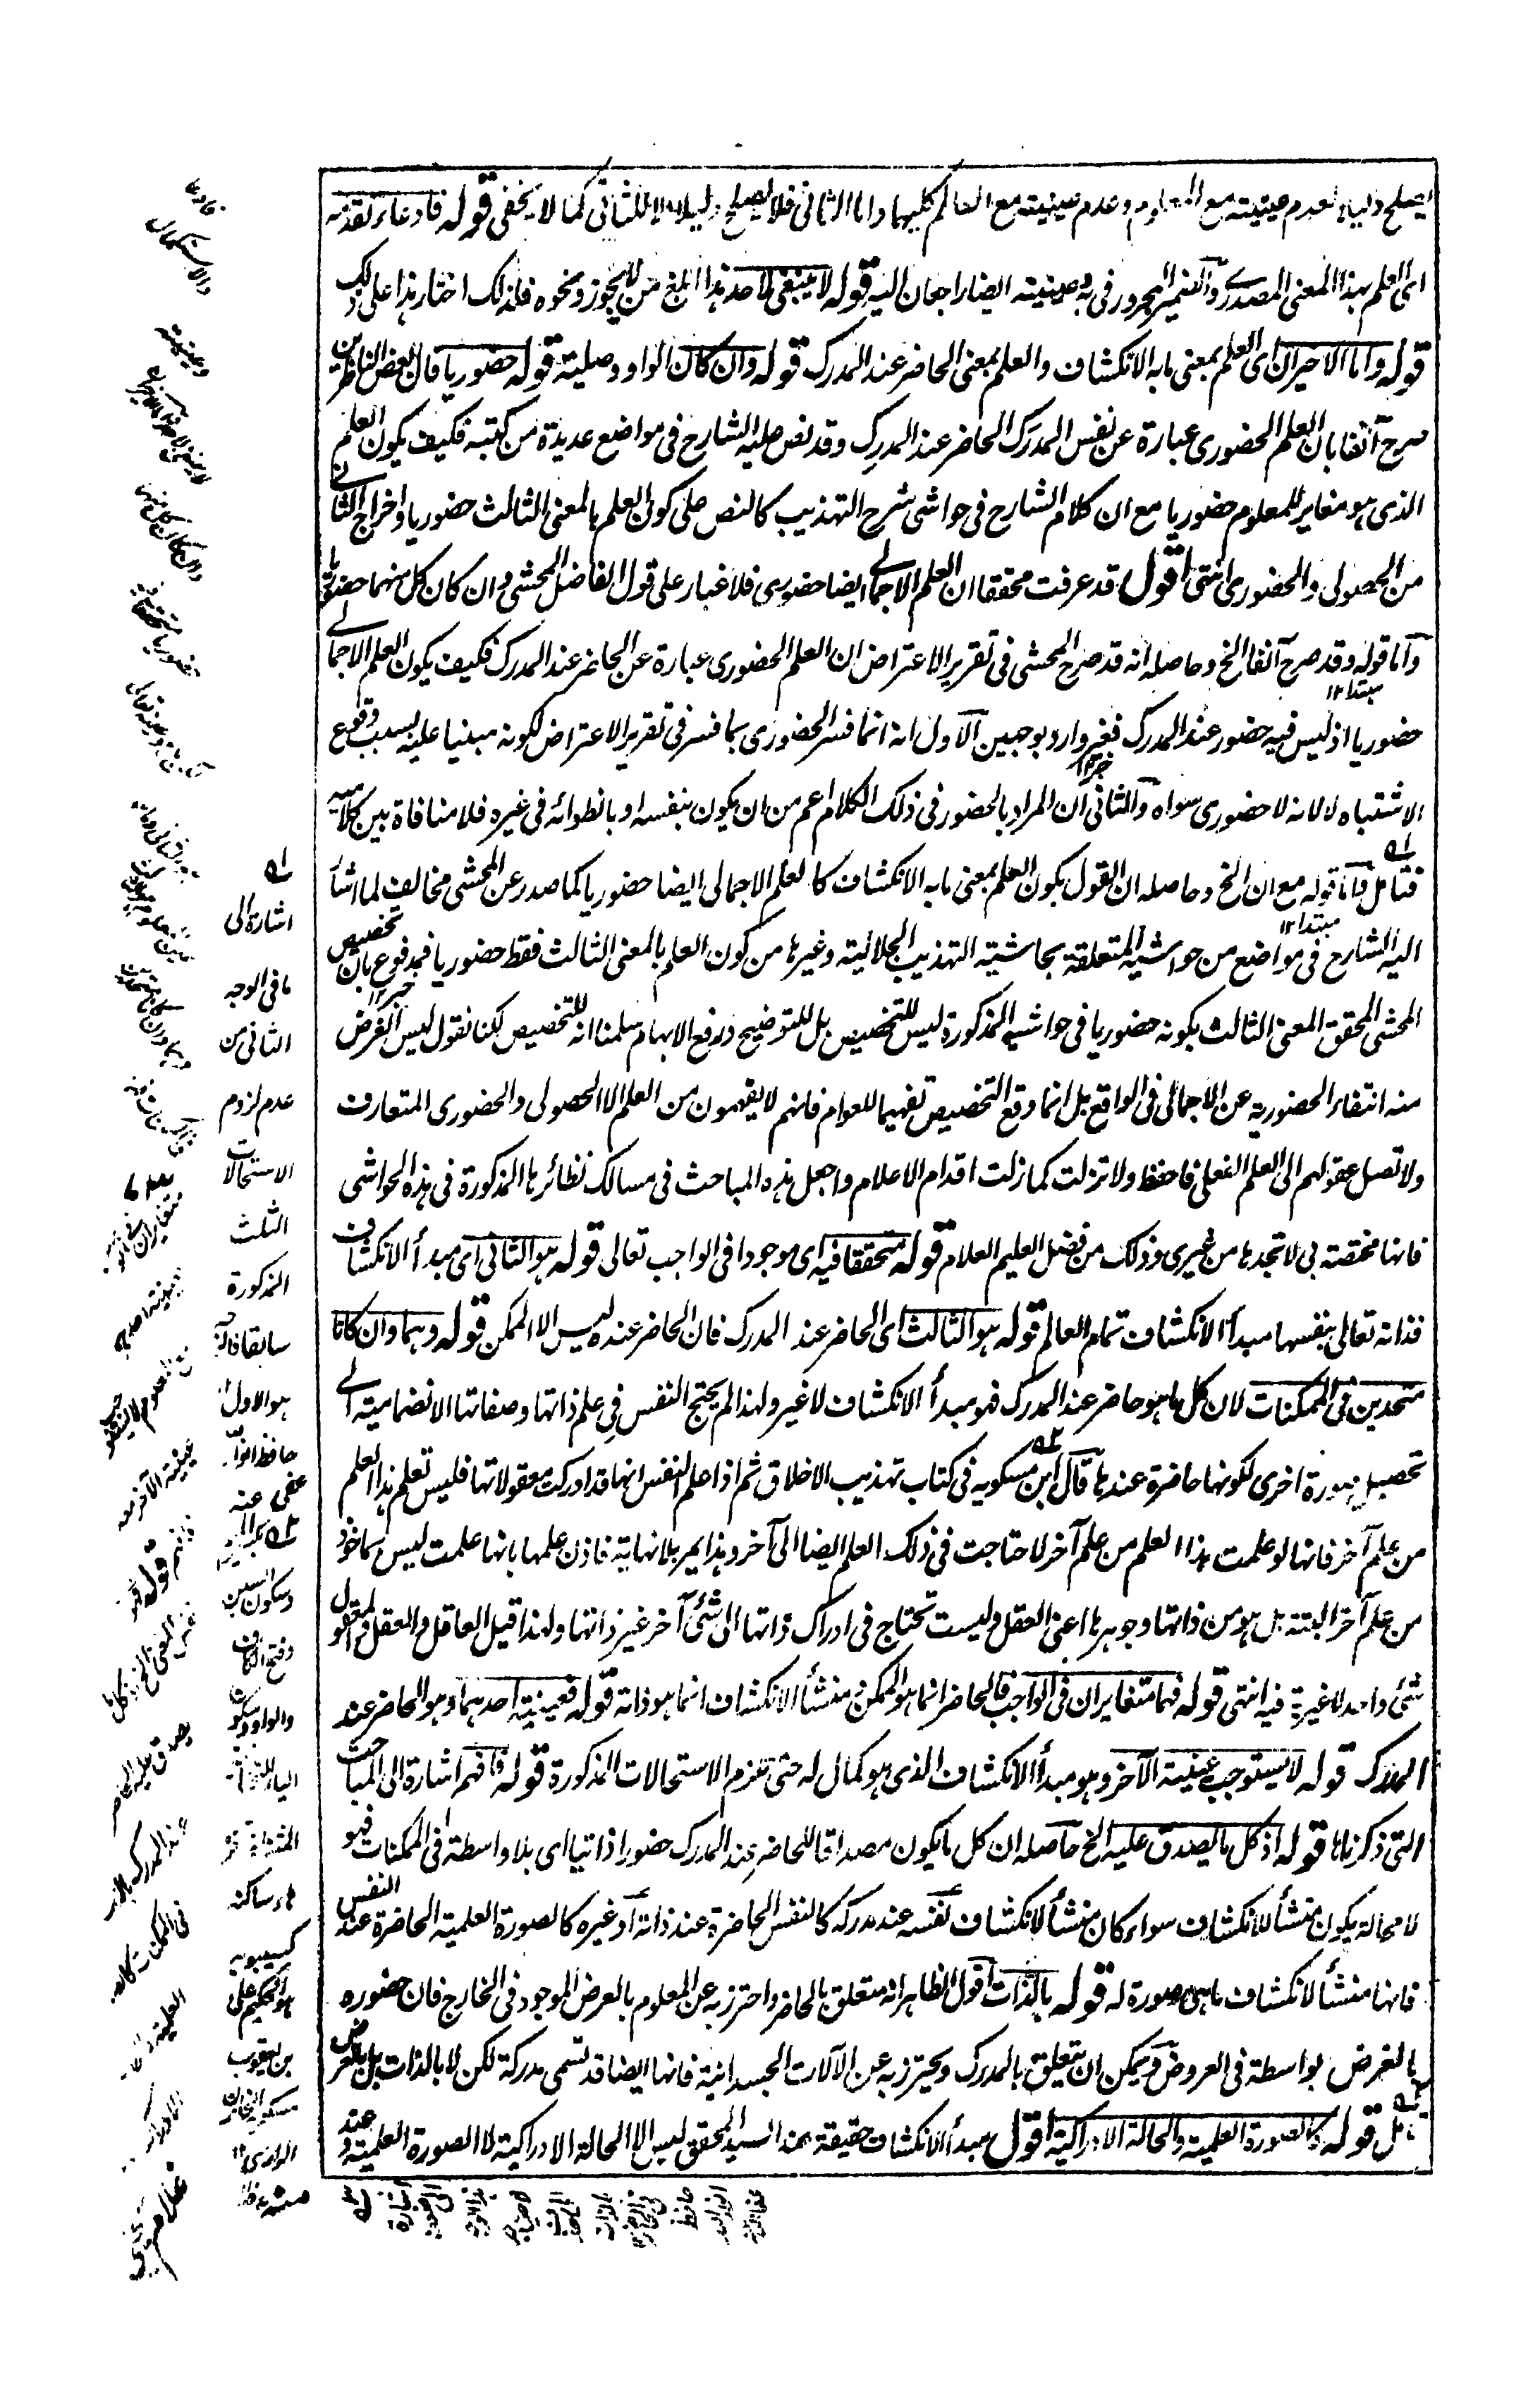 يصلح دليلا لعدم عينيته مع المعلوم وعدم عينيته مع العالم كليهما واما الثانى فلا يصلح دليلا الا للثانى كما لا يخفى قوله فادعاء تقدمه
اى العلم بهذا المعنى المصدرى والضمير المجرور فى به وعينيته ايضا راجعان اليه قوله لا ينبغى لاحد هذا ابلغ من لا يجوز ونحوه فلذلك اختار هذا على ذلك
قوله واما الاخيران اى العلم بمعنى ما به الانكشاف والعلم بمعنى الحاضر عند المدرك قوله وان كان الواو وصلية قوله حضوريا قال بعض الناظرين
صرح آنفا بان العلم الحضورى عبارة عن نفس المدرَك الحاضر عند المدرِك وقد نص عليه الشارح فى مواضع عديدة من كتبه فكيف يكون العلم
الذى هو مغاير للمعلوم حضوريا مع ان كلام الشارح فى حواشى شرح التهذيب كالنص على كون العلم بالمعنى الثالث حضوريا واخراج الثانى
من الحصولى والحضورى انتهى اقول قد عرفت محققا ان العلم الاجمالى ايضا حضورى فلا غبار على قول الفاضل المحشى وان كان كل منهما حضوريا
واما قوله وقد صرح آنفا الخ وحاصله انه قد صرح المحشى فى تقرير الاعتراض ان العلم الحضورى عبارة عن الحاضر عند المدرك فكيف يكون العلم الاجمالى
مبتدا ١٢
حضوريا اذ ليس فيه حضور عند المدرك فغير وارد بوجهين الاول انه انما فسر الحضورى بما فسر فى تقرير الاعتراض لكونه مبنيا عليه بسبب وقوع
خبر ١٢
الاشتباه لا لانه لا حضورى سواه والثانى ان المراد بالحضور فى ذلك الكلام اعم من ان يكون بنفسه او بانطوائه فى غيره فلا منافاة بين كلاميه
فتامل واما قوله مع ان الخ وحاصله ان القول بكون العلم بمعنى ما به الانكشاف كالعلم الاجمالى ايضا حضوريا كما صدر عن المحشى مخالف لما اشار
مبتدا ١٢
اليه الشارح فى مواضع من حواشيه المتعلقة بحاشية التهذيب الجلالية وغيرها من كون العلم بالمعنى الثالث فقط حضوريا فمدفوع بان تخصيص
خبر ١٢
المحشى المحقق المعنى الثالث بكونه حضوريا فى حواشيه المذكورة ليس للتخصيص بل للتوضيح ودفع الابهام سلمنا انه للتخصيص لكنا نقول ليس الغرض
منه انتفاء الحضورية عن الاجمالى فى الواقع بل انما وقع التخصيص تفهيما للعوام فانهم لا يفهمون من العلم الا الحصولى والحضورى المتعارف
ولا تصل عقولهم الى العلم الفعلى فاحفظ ولا تزلت كما زلت اقدام الاعلام واجعل هذه المباحث فى مسالك نظائرها المذكورة فى هذه الحواشى
فانها مختصة بى لا تجدها من غيرى وذلك من فضل العليم العلام قوله متحققا فيه اى موجودا فى الواجب تعالى قوله هو الثانى اى مبدأ الانكشاف
فذاته تعالى بنفسها مبدأ الانكشاف تمام العالم قوله هو الثالث اى الحاضر عند المدرك فان الحاضر عنده ليس الا الممكن قوله وهما وان كانا
متحدين فى الممكنات لان كل ما هو حاضر عند المدرك فهو مبدأ الانكشاف لا غير ولهذا لم يحتج النفس فى علم ذاتها وصفاتها الانضمامية الى
تحصيل صورة اخرى لكونها حاضرة عندها قال ابن مسكويه فى كتاب تهذيب الاخلاق ثم اذا علم النفس انها قد ادركت معقولاتها فليس تعلم هذا العلم
من علم آخر فانها لو علمت هذا العلم من علم آخر لاحتاجت فى ذلك العلم ايضا الى آخر وهذا يمر بلا نهاية فاذن علمها بانها علمت ليس ماخوذ
من علم آخر البتة بل هو من ذاتها وجوهرها اعنى العقل وليست تحتاج فى ادراك ذاتها الى شئ آخر غير ذاتها ولهذا قيل العاقل والعقل والمعقول
شئ واحد لا غيرية فيه انتهى قوله فهما متغايران فى الواجب فالحاضر انما هو الممكن ومنشأ الانكشاف انما هو ذاته قوله فعينية احدهما وهو الحاضر عند
المدرك قوله لا يستوجب عينية الآخر وهو مبدأ الانكشاف الذى هو كمال له حتى تلزم الاستحالات المذكورة قوله فافهم اشارة الى المباحث
التى ذكرناها قوله اذ كل ما يصدق عليه الخ حاصله ان كل ما يكون مصداقا للحاضر عند المدرك حضورا ذاتيا اى بلا واسطة فى الممكنات فهو
لا محالة يكون منشأ للانكشاف سواء كان منشأ لانكشاف نفسه عند مدركه كالنفس الحاضرة عند ذاته او غيره كالصورة العلمية الحاضرة عند النفس
فانها منشأ لانكشاف ما هى صورة له قوله بالذات اقول الظاهر انه متعلق بالحاضر واحترز به عن المعلوم بالعرض الموجود فى الخارج فان حضوره
بالعرض بواسطة فى العروض ويمكن ان يتعلق بالمدرك ويحترز به عن الآلات الجسدانية فانها ايضا قد تسمى مدركة لكن لا بالذات بل بالعرض
تامل قوله كالصورة العلمية والحالة الادراكية اقول مبدأ الانكشاف حقيقة عند السيد المحقق ليس الا الحالة الادراكية لا الصورة العلمية وعند
اشارة الى
ما فى الوجه
الثانى من
عدم لزوم
الاستحالات
الثلث
المذكورة
سابقا
هو الاول
عفى عنه
وسكون السين
وفتح الكاف
هاء ساكنة
كسيبويه
هو الحكيم على
بن يعقوب
مسكويه الخازن
الرازى ١٢